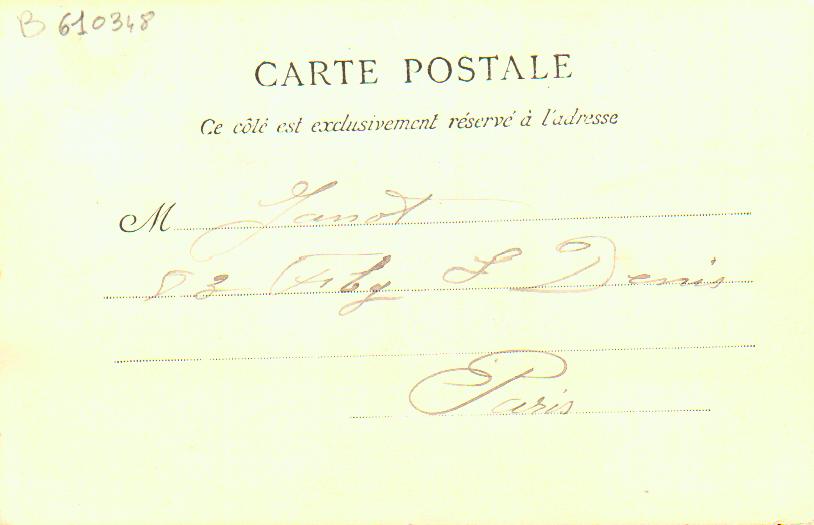 B 610348
CARTE POSTALE
Ce côté est exclusivement réservé à l'adresse
M Janot
83 Fbg S Denis
Paris